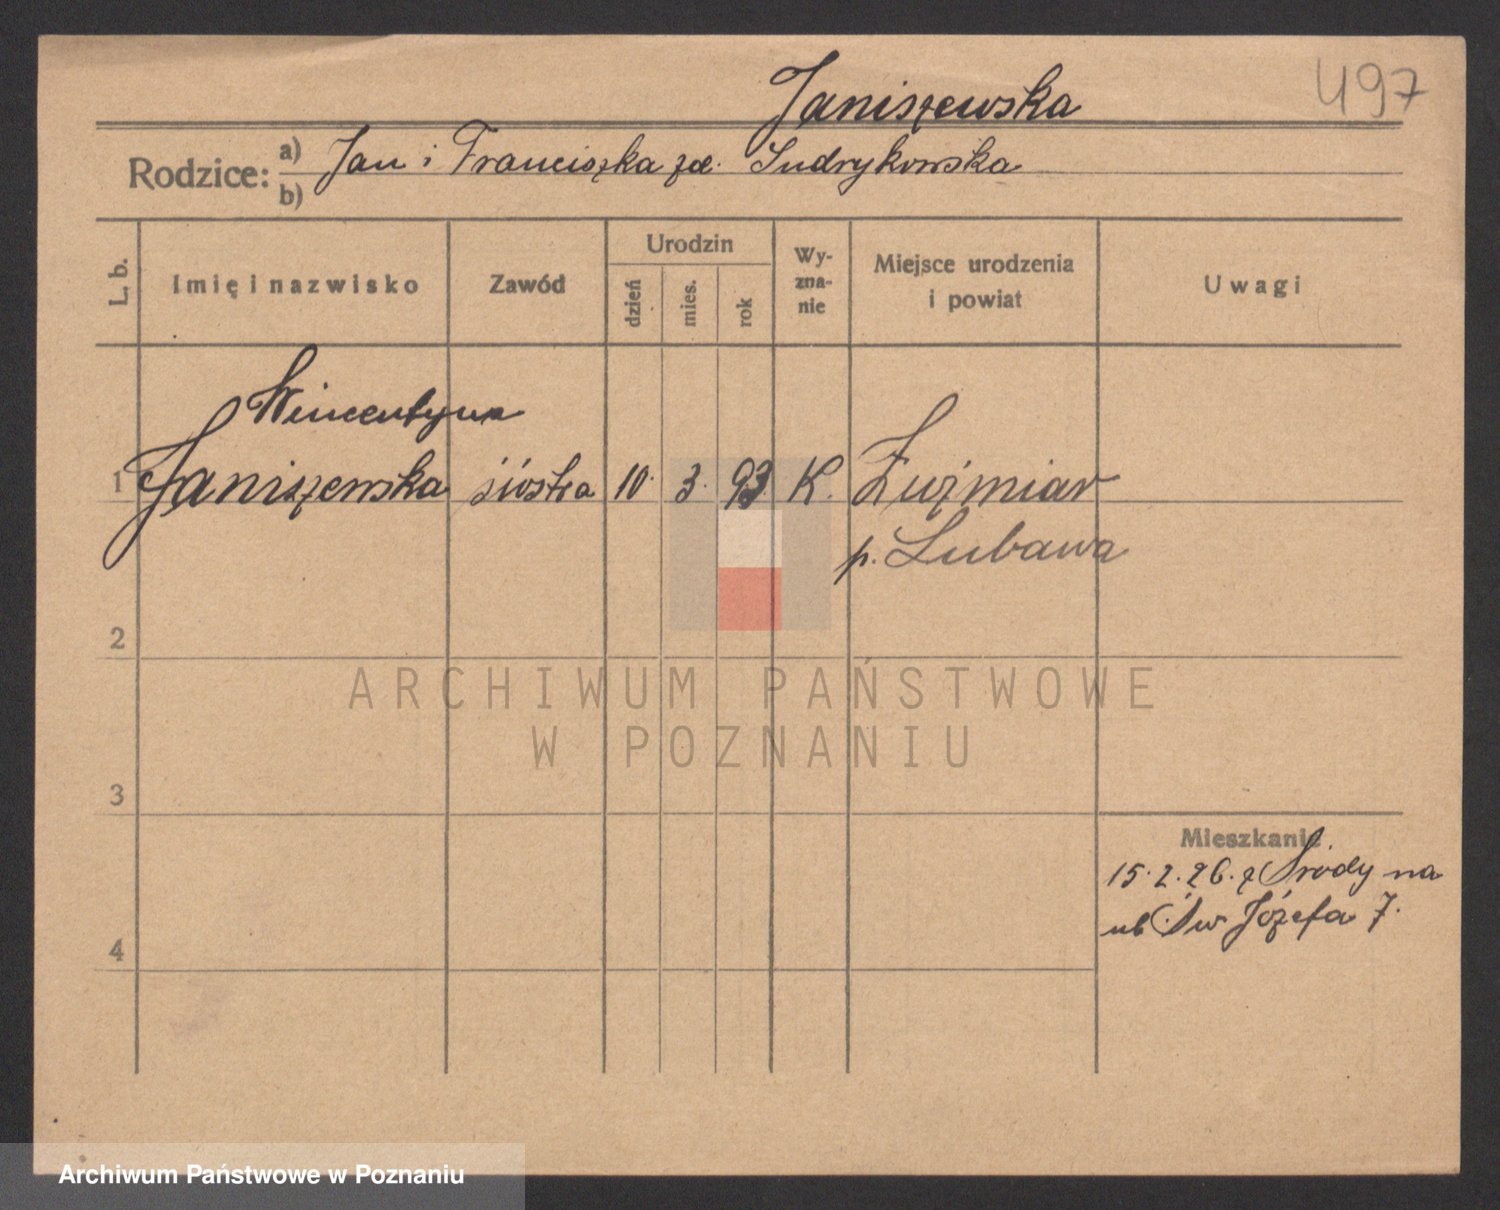 497
Janiszewska
Rodzice: a) Jan i Franciszka zd. Indrykowska
b)
L. b. Imię i nazwisko Zawód Urodzin dzień mies. rok Wyznanie Miejsce urodzenia i powiat Uwagi
Wincentyna
1 Janiszewska siostra 10. 3. 93 K.
p. Lubawa
2
ARCHIWUM PAŃSTWOWE
W POZNANIU
3
Mieszkanie
15. 2. 26. z Środy na
ul Św Józefa 7.
4
Archiwum Państwowe w Poznaniu